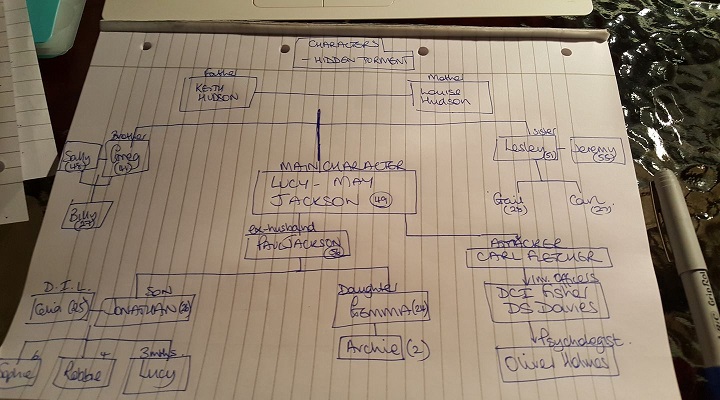 CHARACTERS
- HIDDEN TORMENT
Father
KEITH
HUDSON
Mother
Louise
Hudson
Brother
Sally
Greg
Sister
Lesley (51)
Jeremy
(55)
Billy
(27)
MAIN CHARACTER
LUCY-MAY
JACKSON (49)
Gail
(25)
(27)
ex-husband
PAUL JACKSON
ATTACKER
CARL FLETCHER
D.I.L.
Celia (25)
SON
JONATHAN
Daughter
GEMMA (24)
Inv. Officers
DCI Fisher
DS Davies
Archie (2)
Psychologist
Oliver Holmes
6
Sophie
4
Robbie
3mths
Lucy